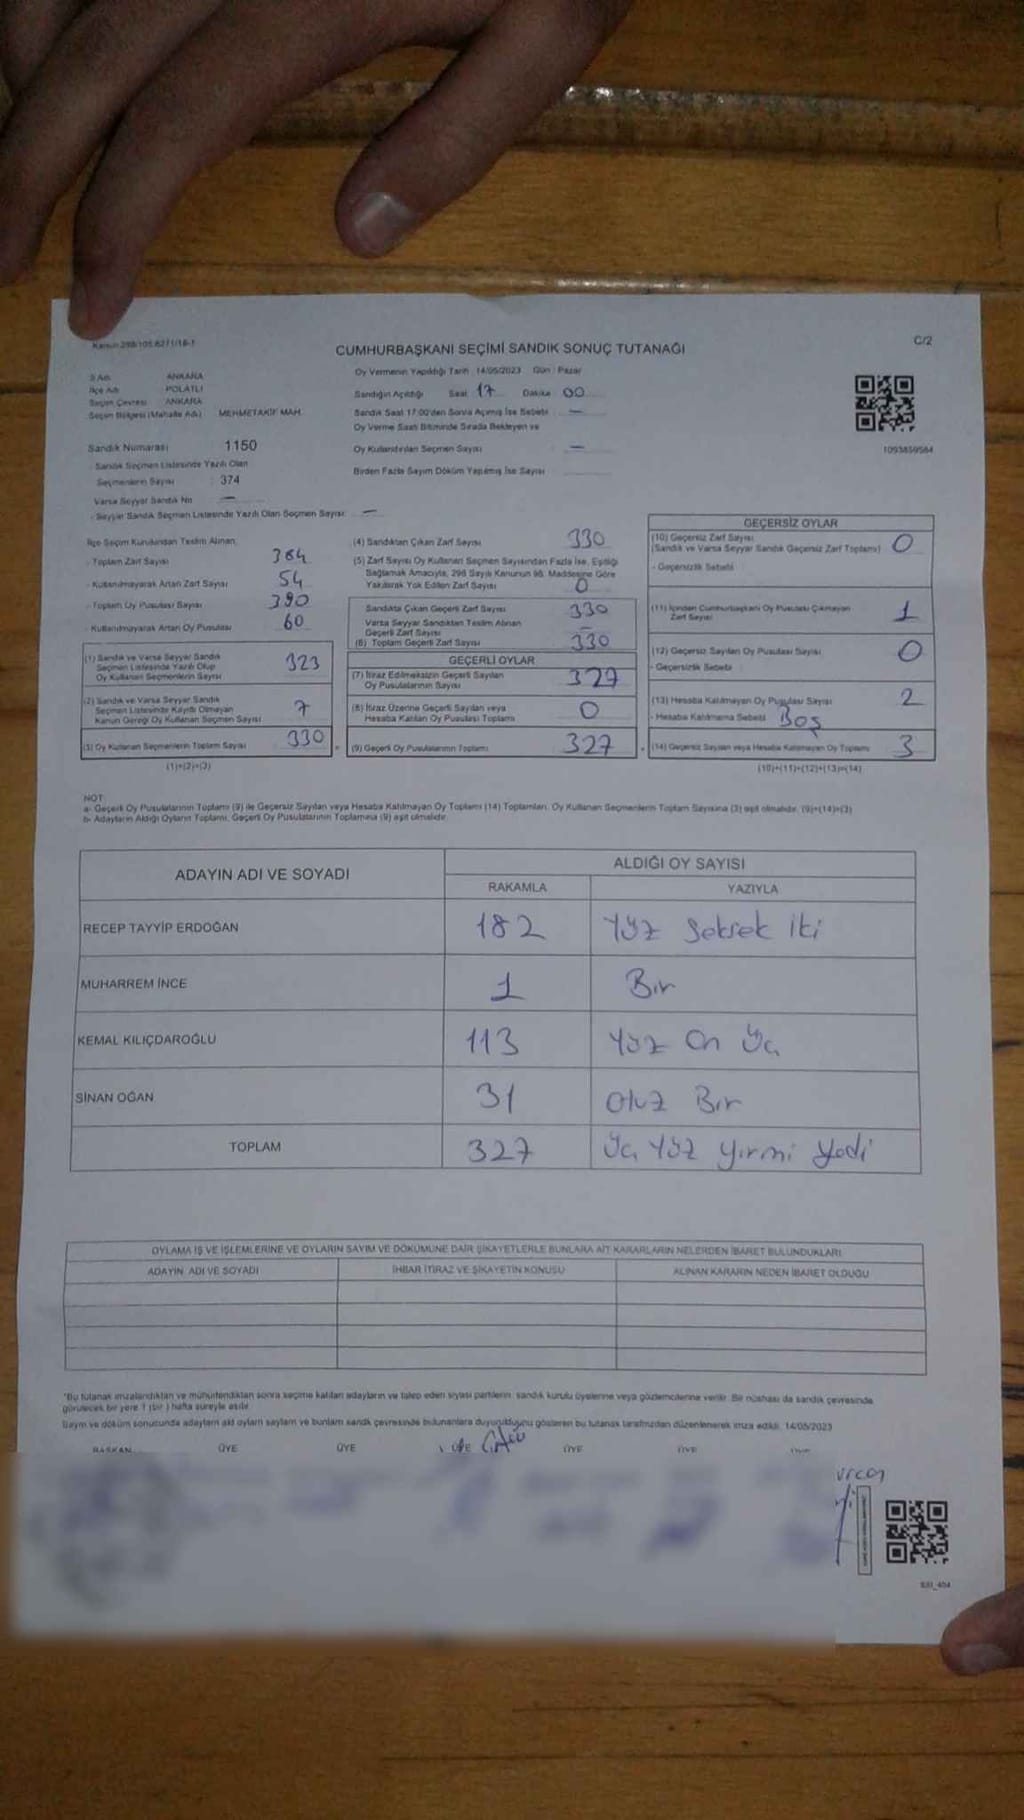 Kanun 298/105 6271/18-1
C/2
CUMHURBAŞKANI SEÇİMİ SANDIK SONUÇ TUTANAĞI
İl Adı ANKARA
İlçe Adı POLATLI
Seçim Çevresi ANKARA
Seçim Bölgesi (Mahalle Adı) MEHMETAKİF MAH.
Sandık Numarası 1150
- Sandık Seçmen Listesinde Yazılı Olan
Seçmenlerin Sayısı : 374
Varsa Seyyar Sandık No —
- Seyyar Sandık Seçmen Listesinde Yazılı Olan Seçmen Sayısı: —
Oy Vermenin Yapıldığı Tarih : 14/05/2023 Gün : Pazar
Sandığın Açıldığı Saat 17 Dakika 00
Sandık Saat 17:00'den Sonra Açılmış İse Sebebi —
Oy Verme Saati Bitiminde Sırada Bekleyen ve
Oy Kullandırılan Seçmen Sayısı —
Birden Fazla Sayım Döküm Yapılmış İse Sayısı
1093859584
İlçe Seçim Kurulundan Teslim Alınan;
- Toplam Zarf Sayısı 384
- Kullanılmayarak Artan Zarf Sayısı 54
- Toplam Oy Pusulası Sayısı 390
- Kullanılmayarak Artan Oy Pusulası 60
(1) Sandık ve Varsa Seyyar Sandık
Seçmen Listesinde Yazılı Olup
Oy Kullanan Seçmenlerin Sayısı 323
(2) Sandık ve Varsa Seyyar Sandık
Seçmen Listesinde Kayıtlı Olmayan
Kanun Gereği Oy Kullanan Seçmen Sayısı 7
(3) Oy Kullanan Seçmenlerin Toplam Sayısı 330
(1)+(2)=(3)
(4) Sandıktan Çıkan Zarf Sayısı 330
(5) Zarf Sayısı Oy Kullanan Seçmen Sayısından Fazla İse, Eşitliği
Sağlamak Amacıyla, 298 Sayılı Kanunun 98. Maddesine Göre
Yakılarak Yok Edilen Zarf Sayısı 0
Sandıkta Çıkan Geçerli Zarf Sayısı 330
Varsa Seyyar Sandıktan Teslim Alınan
Geçerli Zarf Sayısı —
(6) Toplam Geçerli Zarf Sayısı 330
GEÇERLİ OYLAR
(7) İtiraz Edilmeksizin Geçerli Sayılan
Oy Pusulalarının Sayısı 327
(8) İtiraz Üzerine Geçerli Sayılan veya
Hesaba Katılan Oy Pusulası Toplamı 0
(9) Geçerli Oy Pusulalarının Toplamı 327
GEÇERSİZ OYLAR
(10) Geçersiz Zarf Sayısı
(Sandık ve Varsa Seyyar Sandık Geçersiz Zarf Toplamı) 0
- Geçersizlik Sebebi :
(11) İçinden Cumhurbaşkanı Oy Pusulası Çıkmayan
Zarf Sayısı 1
(12) Geçersiz Sayılan Oy Pusulası Sayısı 0
- Geçersizlik Sebebi :
(13) Hesaba Katılmayan Oy Pusulası Sayısı 2
- Hesaba Katılmama Sebebi Boş
(14) Geçersiz Sayılan veya Hesaba Katılmayan Oy Toplamı 3
(10)+(11)+(12)+(13)=(14)
NOT:
a- Geçerli Oy Pusulalarının Toplamı (9) ile Geçersiz Sayılan veya Hesaba Katılmayan Oy Toplamı (14) Toplamları, Oy Kullanan Seçmenlerin Toplam Sayısına (3) eşit olmalıdır. (9)+(14)=(3)
b- Adayların Aldığı Oyların Toplamı, Geçerli Oy Pusulalarının Toplamına (9) eşit olmalıdır.
ADAYIN ADI VE SOYADI ALDIĞI OY SAYISI
RAKAMLA YAZIYLA
RECEP TAYYİP ERDOĞAN 182 Yüz Seksek iki
MUHARREM İNCE 1 Bir
KEMAL KILIÇDAROĞLU 113 Yüz On Üç
SİNAN OĞAN 31 Otuz Bir
TOPLAM 327 Üç Yüz yirmi yedi
OYLAMA İŞ VE İŞLEMLERİNE VE OYLARIN SAYIM VE DÖKÜMÜNE DAİR ŞİKAYETLERLE BUNLARA AİT KARARLARIN NELERDEN İBARET BULUNDUKLARI
ADAYIN ADI VE SOYADI İHBAR İTİRAZ VE ŞİKAYETİN KONUSU ALINAN KARARIN NEDEN İBARET OLDUĞU
*Bu tutanak imzalandıktan ve mühürlendikten sonra seçime katılan adayların ve talep eden siyasi partilerin, sandık kurulu üyelerine veya gözlemcilerine verilir. Bir nüshası da sandık çevresinde
görülecek bir yere 1 (bir) hafta süreyle asılır.
Sayım ve döküm sonucunda adayların aldığı oyların sayıların ve bunların sandık çevresinde bulunanlara duyurulduğunu gösteren bu tutanak tarafımızdan düzenlenerek imza edildi. 14/05/2023
BAŞKAN ÜYE ÜYE ÜYE ÜYE ÜYE ÜYE